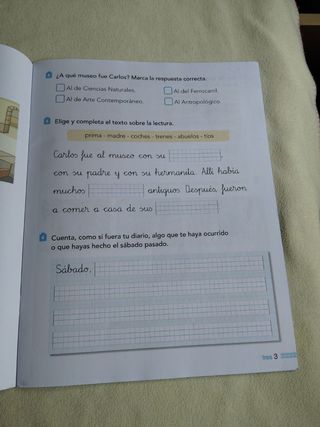 ¿A qué museo fue Carlos? Marca la respuesta correcta.
Al de Ciencias Naturales.
Al del Ferrocarril.
Al de Arte Contemporáneo.
Al Antropológico.
Elige y completa el texto sobre la lectura.
prima - madre - coches - trenes - abuelos - tíos
Carlos fue al museo con su ,
con su padre y con su hermanda. Allí había
muchos antiguos. Después, fueron
a comer a casa de sus
Cuenta, como si fuera tu diario, algo que te haya ocurrido
o que hayas hecho el sábado pasado.
Sábado,
tres 3